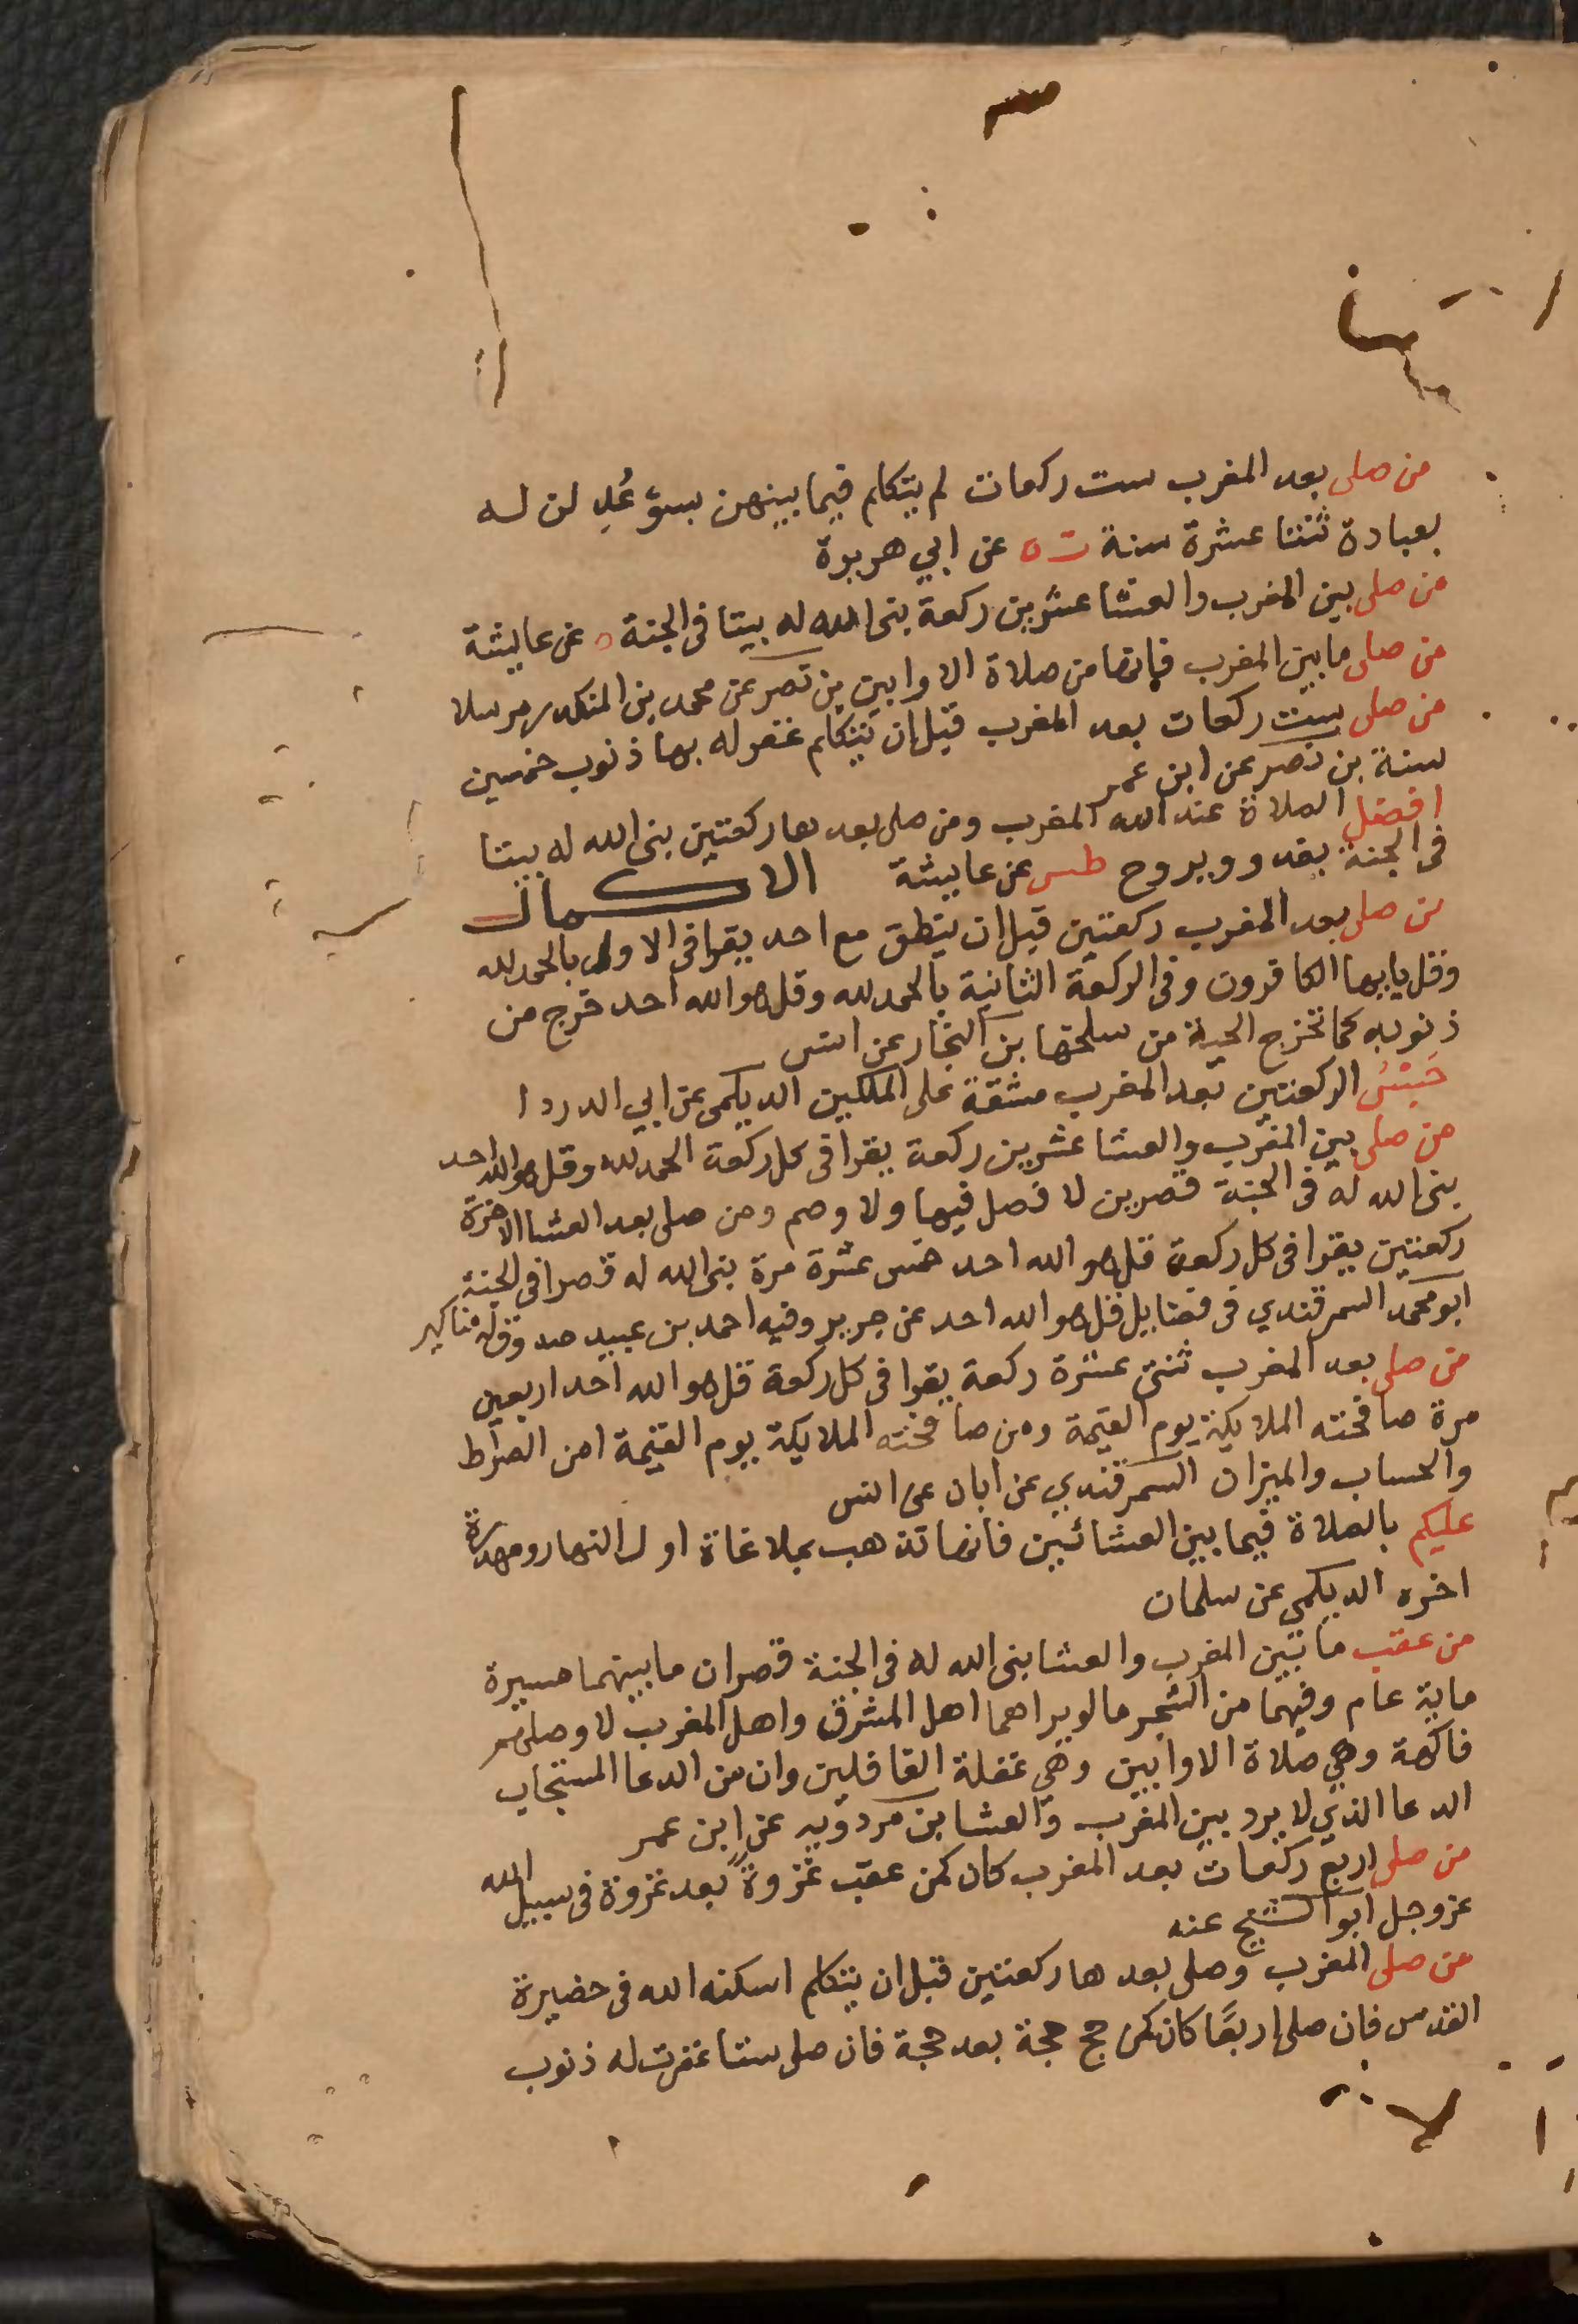 من صلى بعد المغرب ست ركعات لم يتكلم فيما بينهن بسؤ عُدِلن له
بعبادة ثنتا عشرة سنة ت ه عن ابي هريرة
من صلى بين المغرب والعشا عشرين ركعة بنى الله له بيتا فى الجنة ه عن عايشة
من صلى مابين المغرب فانها من صلاة الاوابين بن نصر عن محمد بن المنكدر مرسلا
من صلى ست ركعات بعد المغرب قبل ان يتكلم غفر له بها ذنوب خمسين
سنة بن نصر عن ابن عمر
افضل الصلاة عند الله المغرب ومن صلى بعدها ركعتين بنى الله له بيتا
فى الجنة يغدو ويروح طس عن عايشة الاكمال
من صلى بعد المغرب ركعتين قبل ان ينطق مع احد يقرا فى الاولى بالحمد لله
وقل يايها الكافرون وفى الركعة الثانية بالحمد لله وقل هو الله احد خرج من
ذنوبه كما تخرج الحية من سلخها بن النجار عن انس
الركعتين بعد المغرب مشقة على الملكين الديلمى عن ابي الدردا
من صلى بين المغرب والعشا عشرين ركعة يقرا فى كل ركعة الحمد لله وقل هو الله احد
بنى الله له فى الجنة قصرين لا فصل فيها ولا وصم ومن صلى بعد العشا الاخرة
ركعتين يقرا فى كل ركعة قل هو الله احد خمس عشرة مرة بنى الله له قصرا فى الجنة
ابو محمد السمرقندي فى فضايل قل هو الله احد عن جرير وفيه احمد بن عبيد صدوق له مناكير
من صلى بعد المغرب ثنتى عشرة ركعة يقرا فى كل ركعة قل هو الله احد اربعين
مرة صافحته الملايكة يوم القيمة ومن صافحته الملايكة يوم القيمة امن الصراط
والحساب والميزان السمرقندي عن ابان عن انس
عليكم بالصلاة فيما بين العشائين فانها تذهب بملاغاة اول النهار ومهدرة
اخره الديلمي عن سلمان
من عقب ما بين المغرب والعشا بنى الله له فى الجنة قصران ما بينهما مسيرة
ماية عام وفيهما من الشجر ما لو يراهما اهل المشرق واهل المغرب لاوصلهم
فاكهة وهي صلاة الاوابين وهي غفلة الغافلين وان من الدعا المستجاب
الدعا الذي لا يرد بين المغرب والعشا بن مردويه عن ابن عمر
من صلى اربع ركعات بعد المغرب كان كمن عقب غزوةً بعد غزوة فى سبيل الله
عز وجل ابو الشيخ عنه
من صلى المغرب وصلى بعدها ركعتين قبل ان يتكلم اسكنه الله فى حضيرة
القدس فان صلى اربعًا كان كمن حج حجة بعد حجة فان صلى ستا غفرت له ذنوب